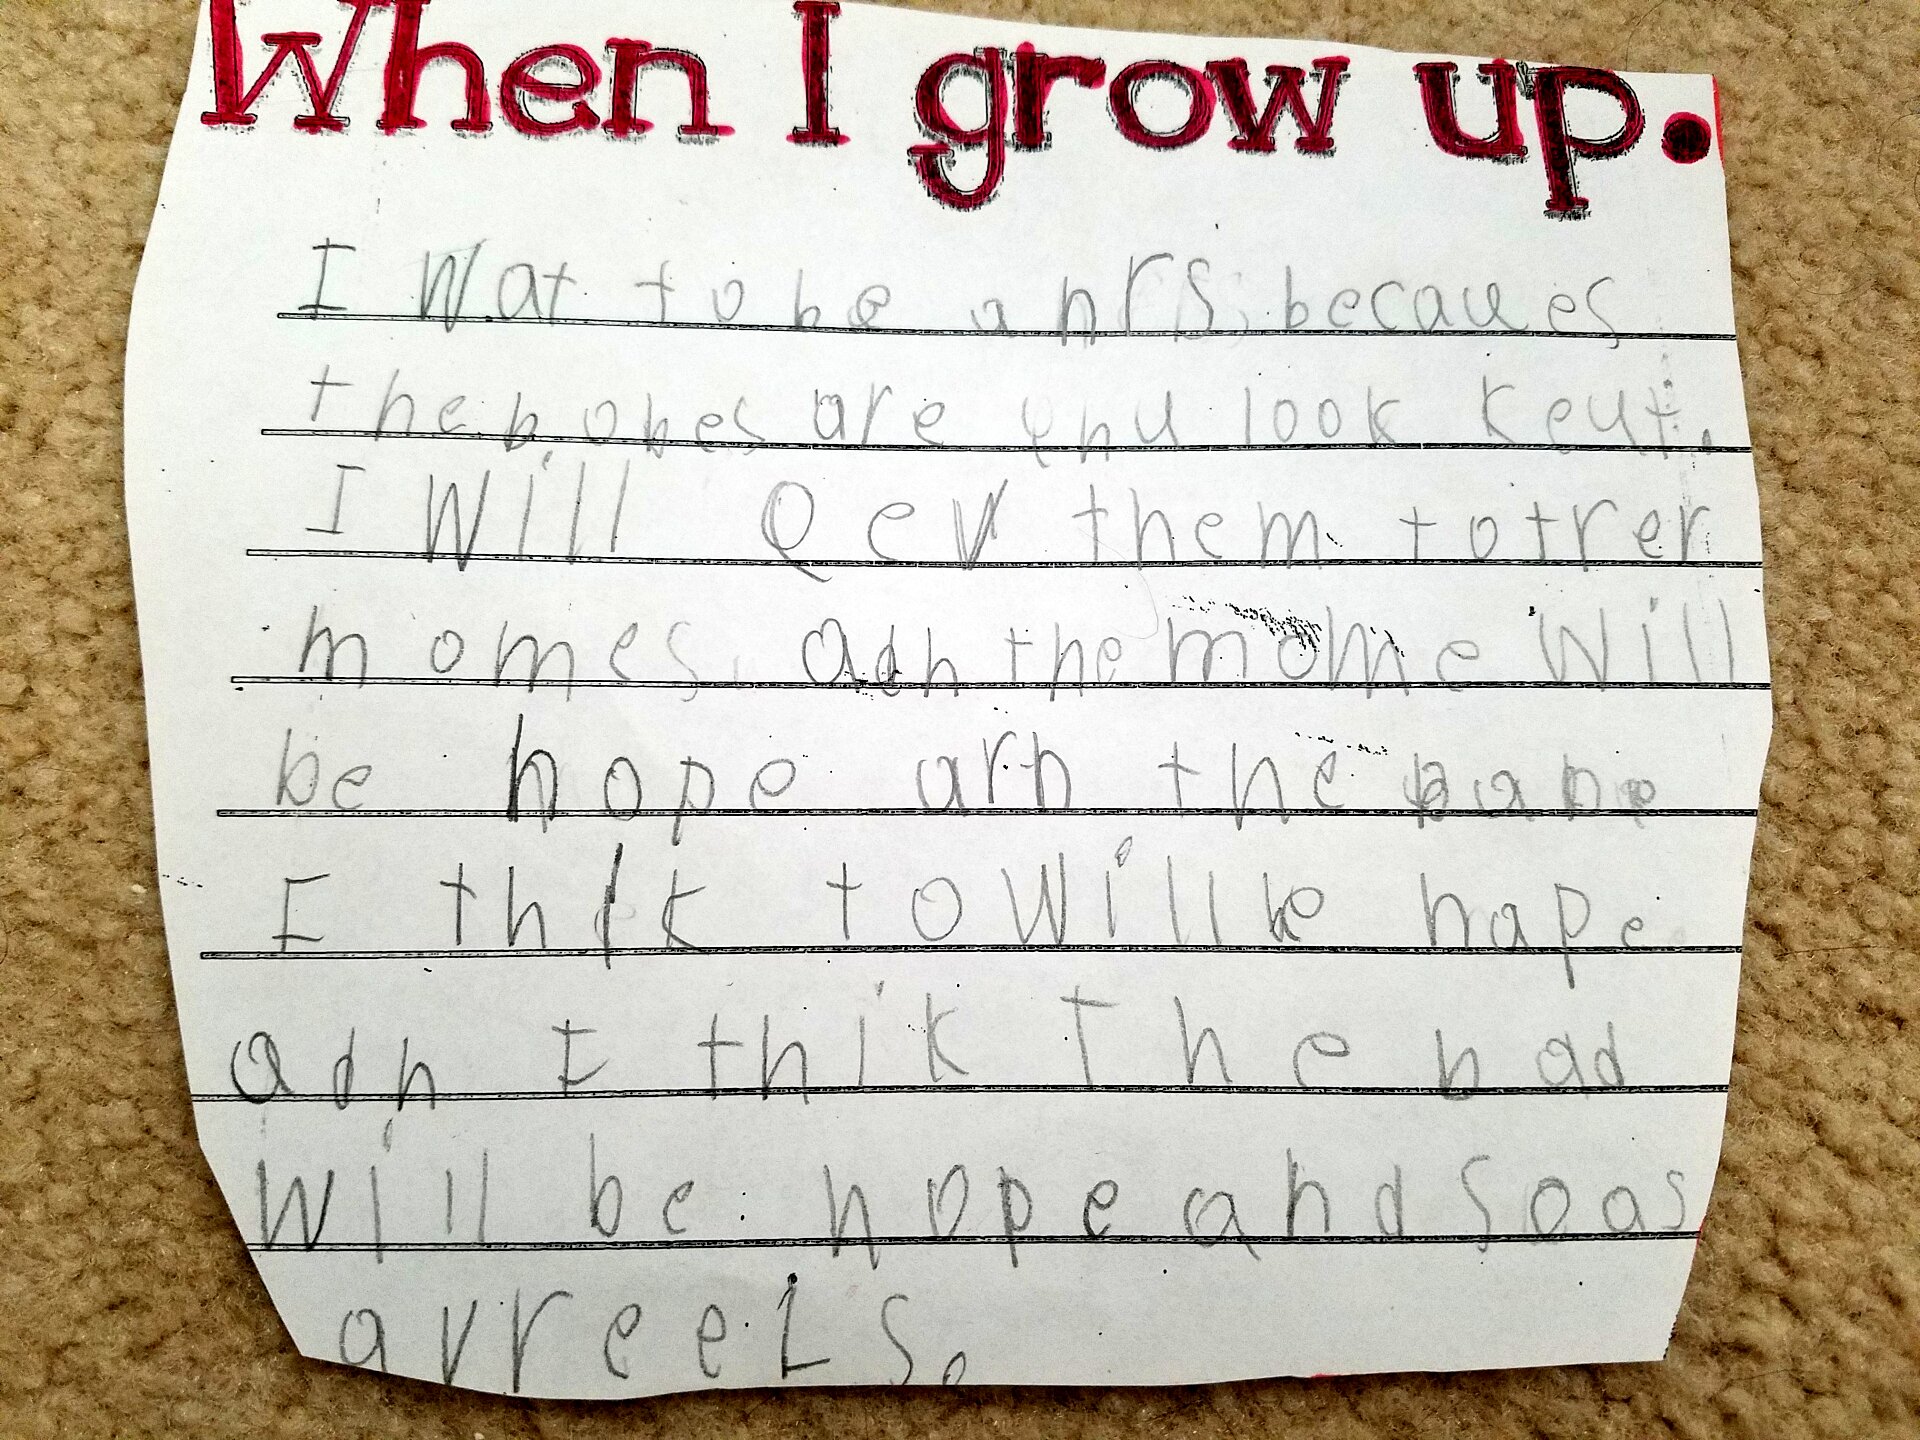 When I grow up.
I Wat to be a nrs becaues
the bobes are look keut.
I Will gev them to trer
momes. adn the mome Will
be hope arn the
I thik to Will be hape
adn I thik The bad
Will be hope and soas
avreels.